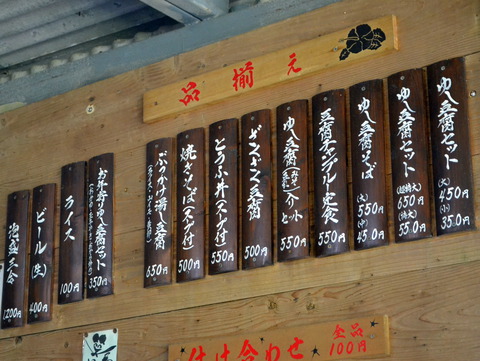 品揃え
ゆし豆腐セット
(大)
450円
(小)
350円
ゆし豆腐セット
(超特大)
650円
(特大)
550円
ゆし豆腐そば
(大)
550円
(中)
450円
豆腐チャンプルー定食
550円
ゆし豆腐
セット
550円
豆腐
500円
とうふ丼(スープ付)
550円
焼きそば(スープ付)
500円
ぶっかけ湯し豆腐
650円
お年寄ゆし豆腐セット
350円
ライス
100円
ビール(生)
400円
泡盛
1200円
付け合わせ
全品
100円